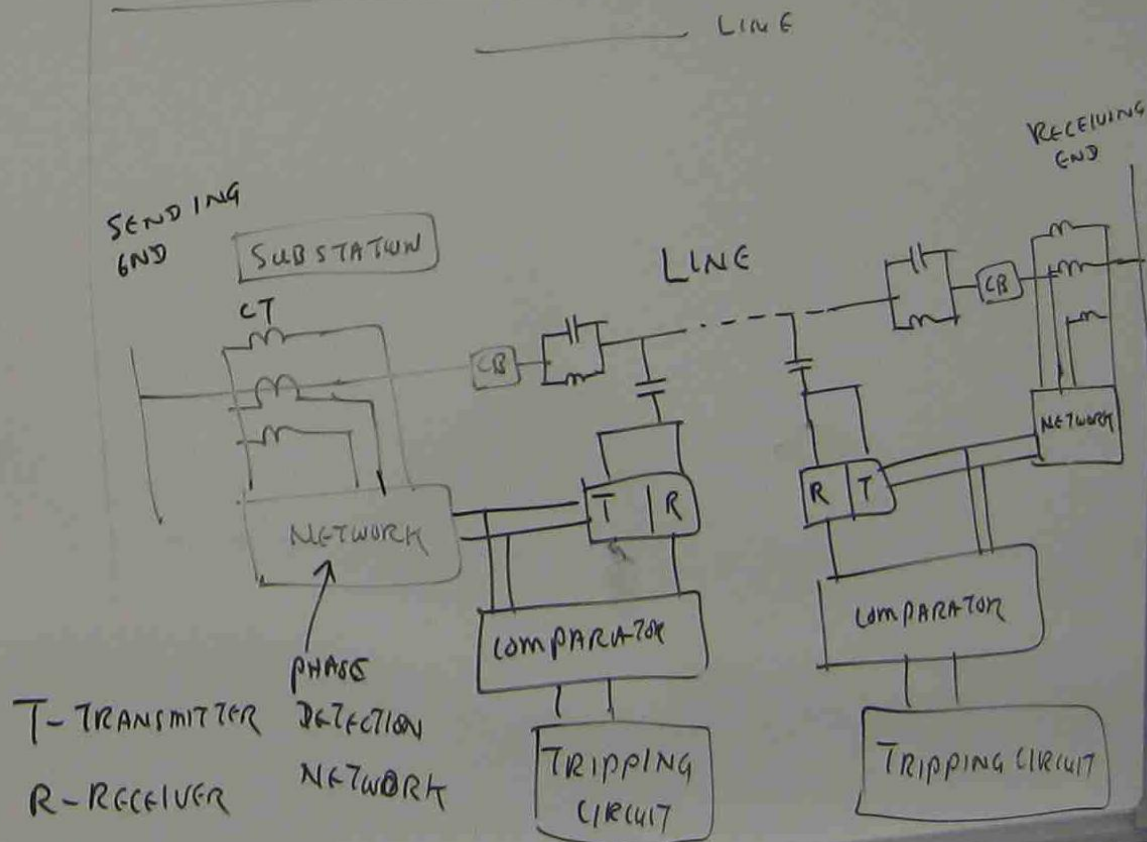 LINE
RECEIVING
END
SENDING
END
SUBSTATION
LINE
CT
CB
CB
NETWORK
T R
R T
NETWORK
COMPARATOR
COMPARATOR
PHASE
DETECTION
NETWORK
T-TRANSMITTER
R-RECEIVER
TRIPPING
CIRCUIT
TRIPPING CIRCUIT